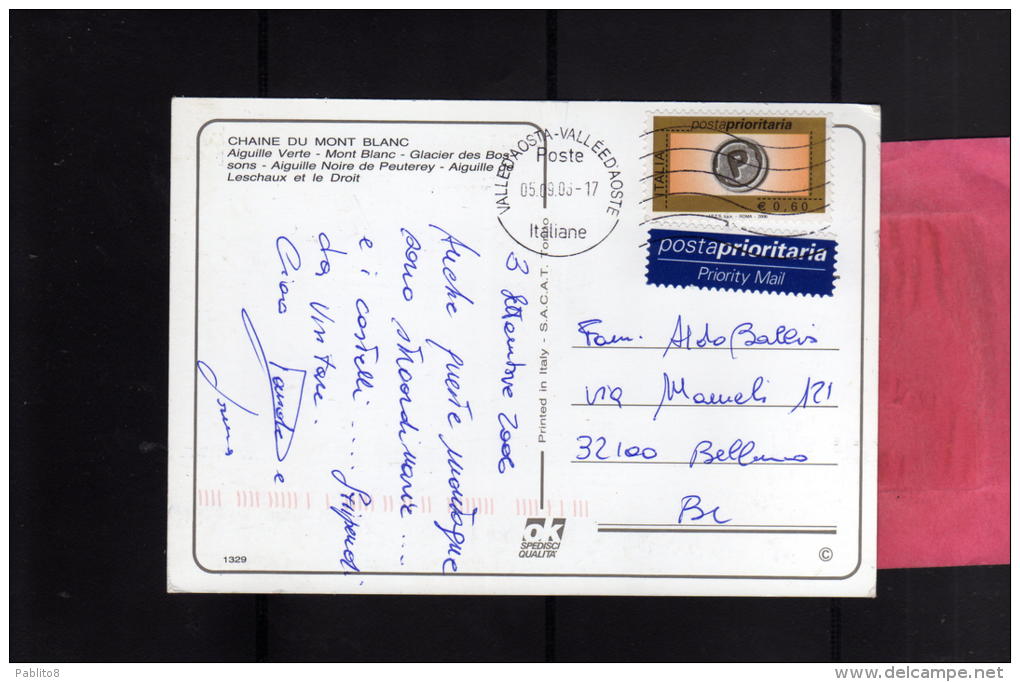 CHAINE DU MONT BLANC
Aiguille Verte - Mont Blanc - Glacier des Bos-
sons - Aiguille Noire de Peuterey - Aiguille de
Leschaux et le Droit
VALLE D'AOSTA-VALLÉE D'AOSTE
Poste
05.09.06-17
Italiane
postaprioritaria
ITALIA
P
€ 0,60
I.P.Z.S. S.p.A. - ROMA - 2006
postaprioritaria
Priority Mail
3 Settembre 2006
Anche queste montagne
sono straordinarie ...
e i castelli .... Stupendi
da visitare.
Ciao
e
Printed in Italy - S.A.C.A.T. Torino
Fam. Aldo Ballis
via Mameli 121
32100 Belluno
BL
ok
SPEDISCI
QUALITA'
1329
©
Pablito8
www.delcampe.net